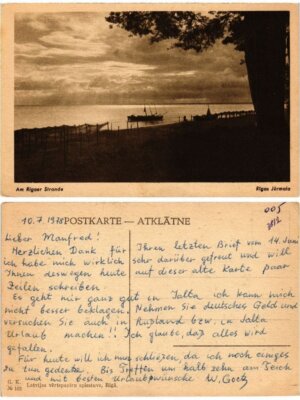 Am Rigaer Strande
Rigas Jūrmala
10.7.1978 POSTKARTE — ATKLĀTNE
005
Lieber Manfred!
Herzlichen Dank für
ich habe mich wirklich
Ihnen deswegen heute
Zeilen schreiben.
Ihren letzten Brief vom 14. Juni
sehr darüber gefreut und will
auf dieser alte Karte paar
Es geht mir ganz gut in Jalta, ich kann mich
nicht besser beklagen. Nehmen Sie deutsches Geld und
versuchen Sie auch in Rußland bzw. in Jalta
Urlaub machen! Ich glaube, daß alles wird
gefallen.
Für heute will ich nun schließen, da ich noch einiges
zu tun gedenke. Bis Treffen um halb zehn am Teich
und mit besten Urlaubswünsche W. Goetz
G. K.
№ 102
Latvijas vērtspapīru spiestuve, Rīgā.